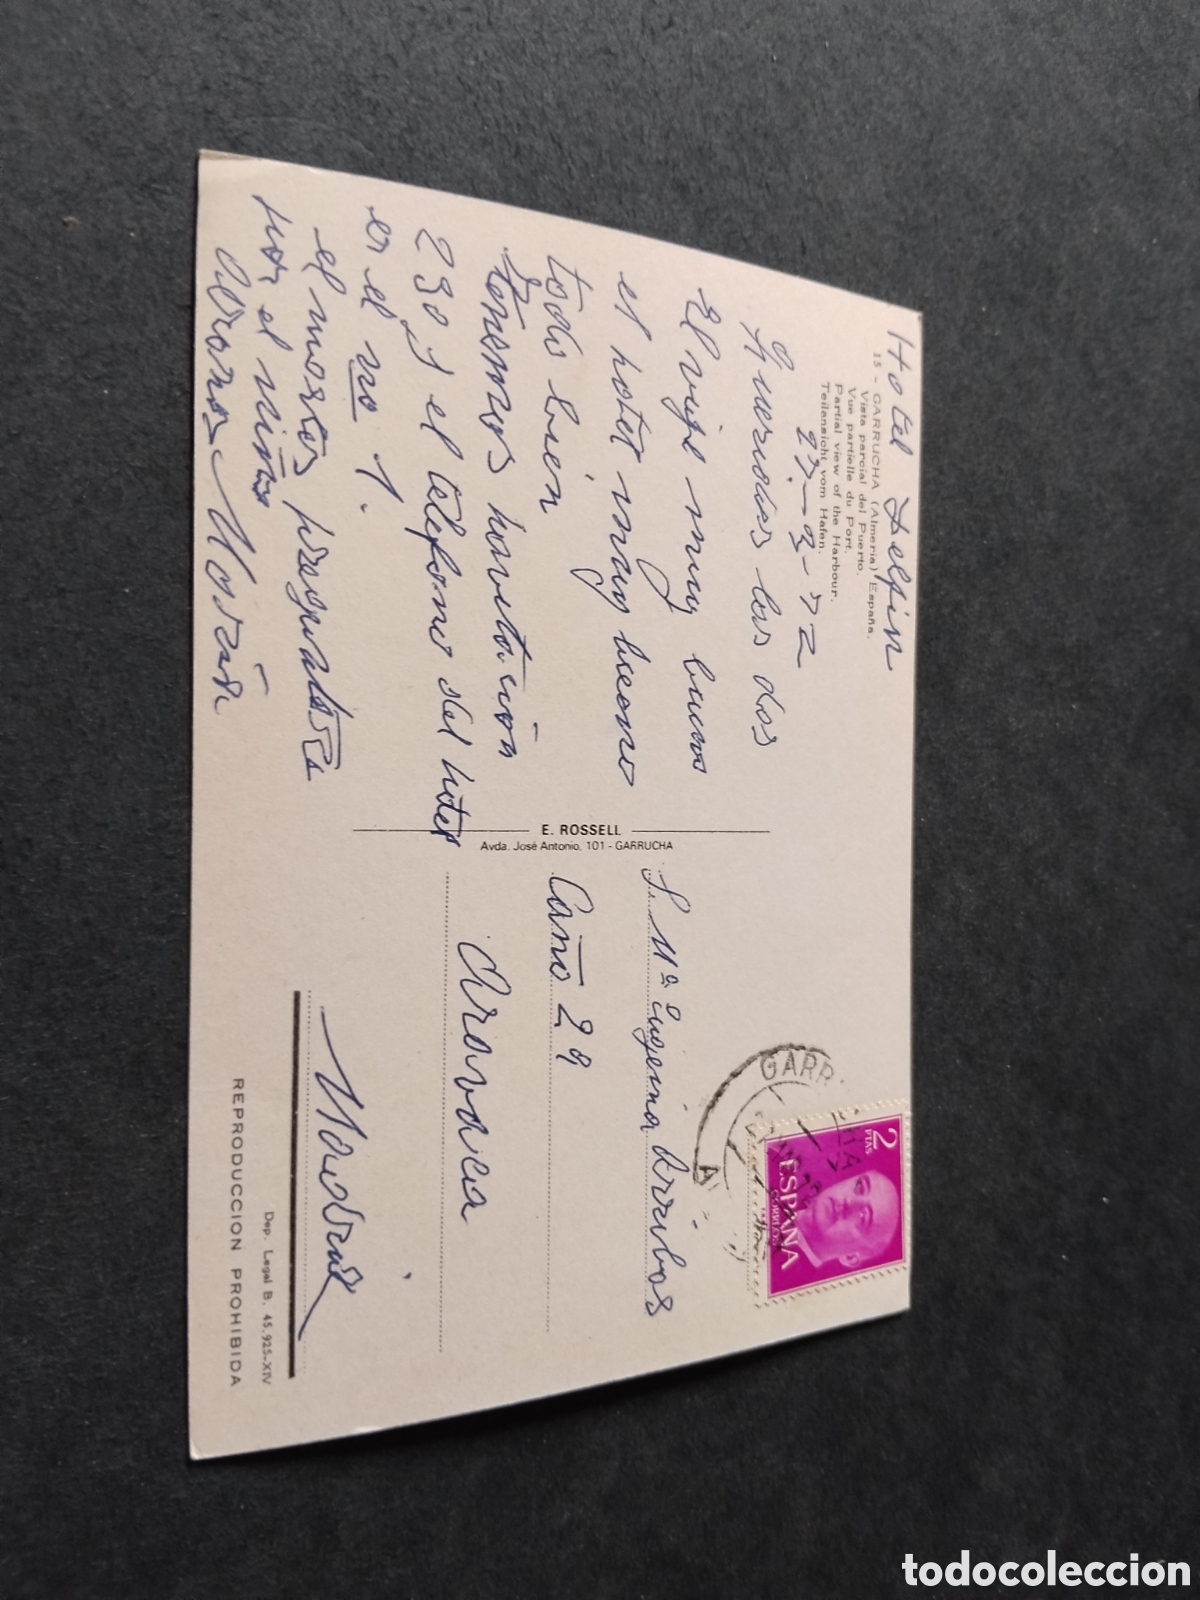 Hotel Delfin
15 - GARRUCHA (Almería) España.
Vista parcial del Puerto.
Vue partielle du Port.
Partial view of the Harbour.
Teilansicht vom Hafen.
27-8-72
Queridos los dos
El viaje muy bueno
el hotel muy bueno
todo bien
Tenemos habitación
230 y el telefono del hotel
es el nº 1.
el martes
por el niño
E. ROSSELL
Avda. José Antonio, 101 - GARRUCHA
S. Mª Eugenia Arribas
Caño 29
Aravaca
Madrid
GARR
2
PTAS
ESPAÑA
CORREOS
Dep. Legal B. 45.925-XIV
REPRODUCCION PROHIBIDA
todocoleccion